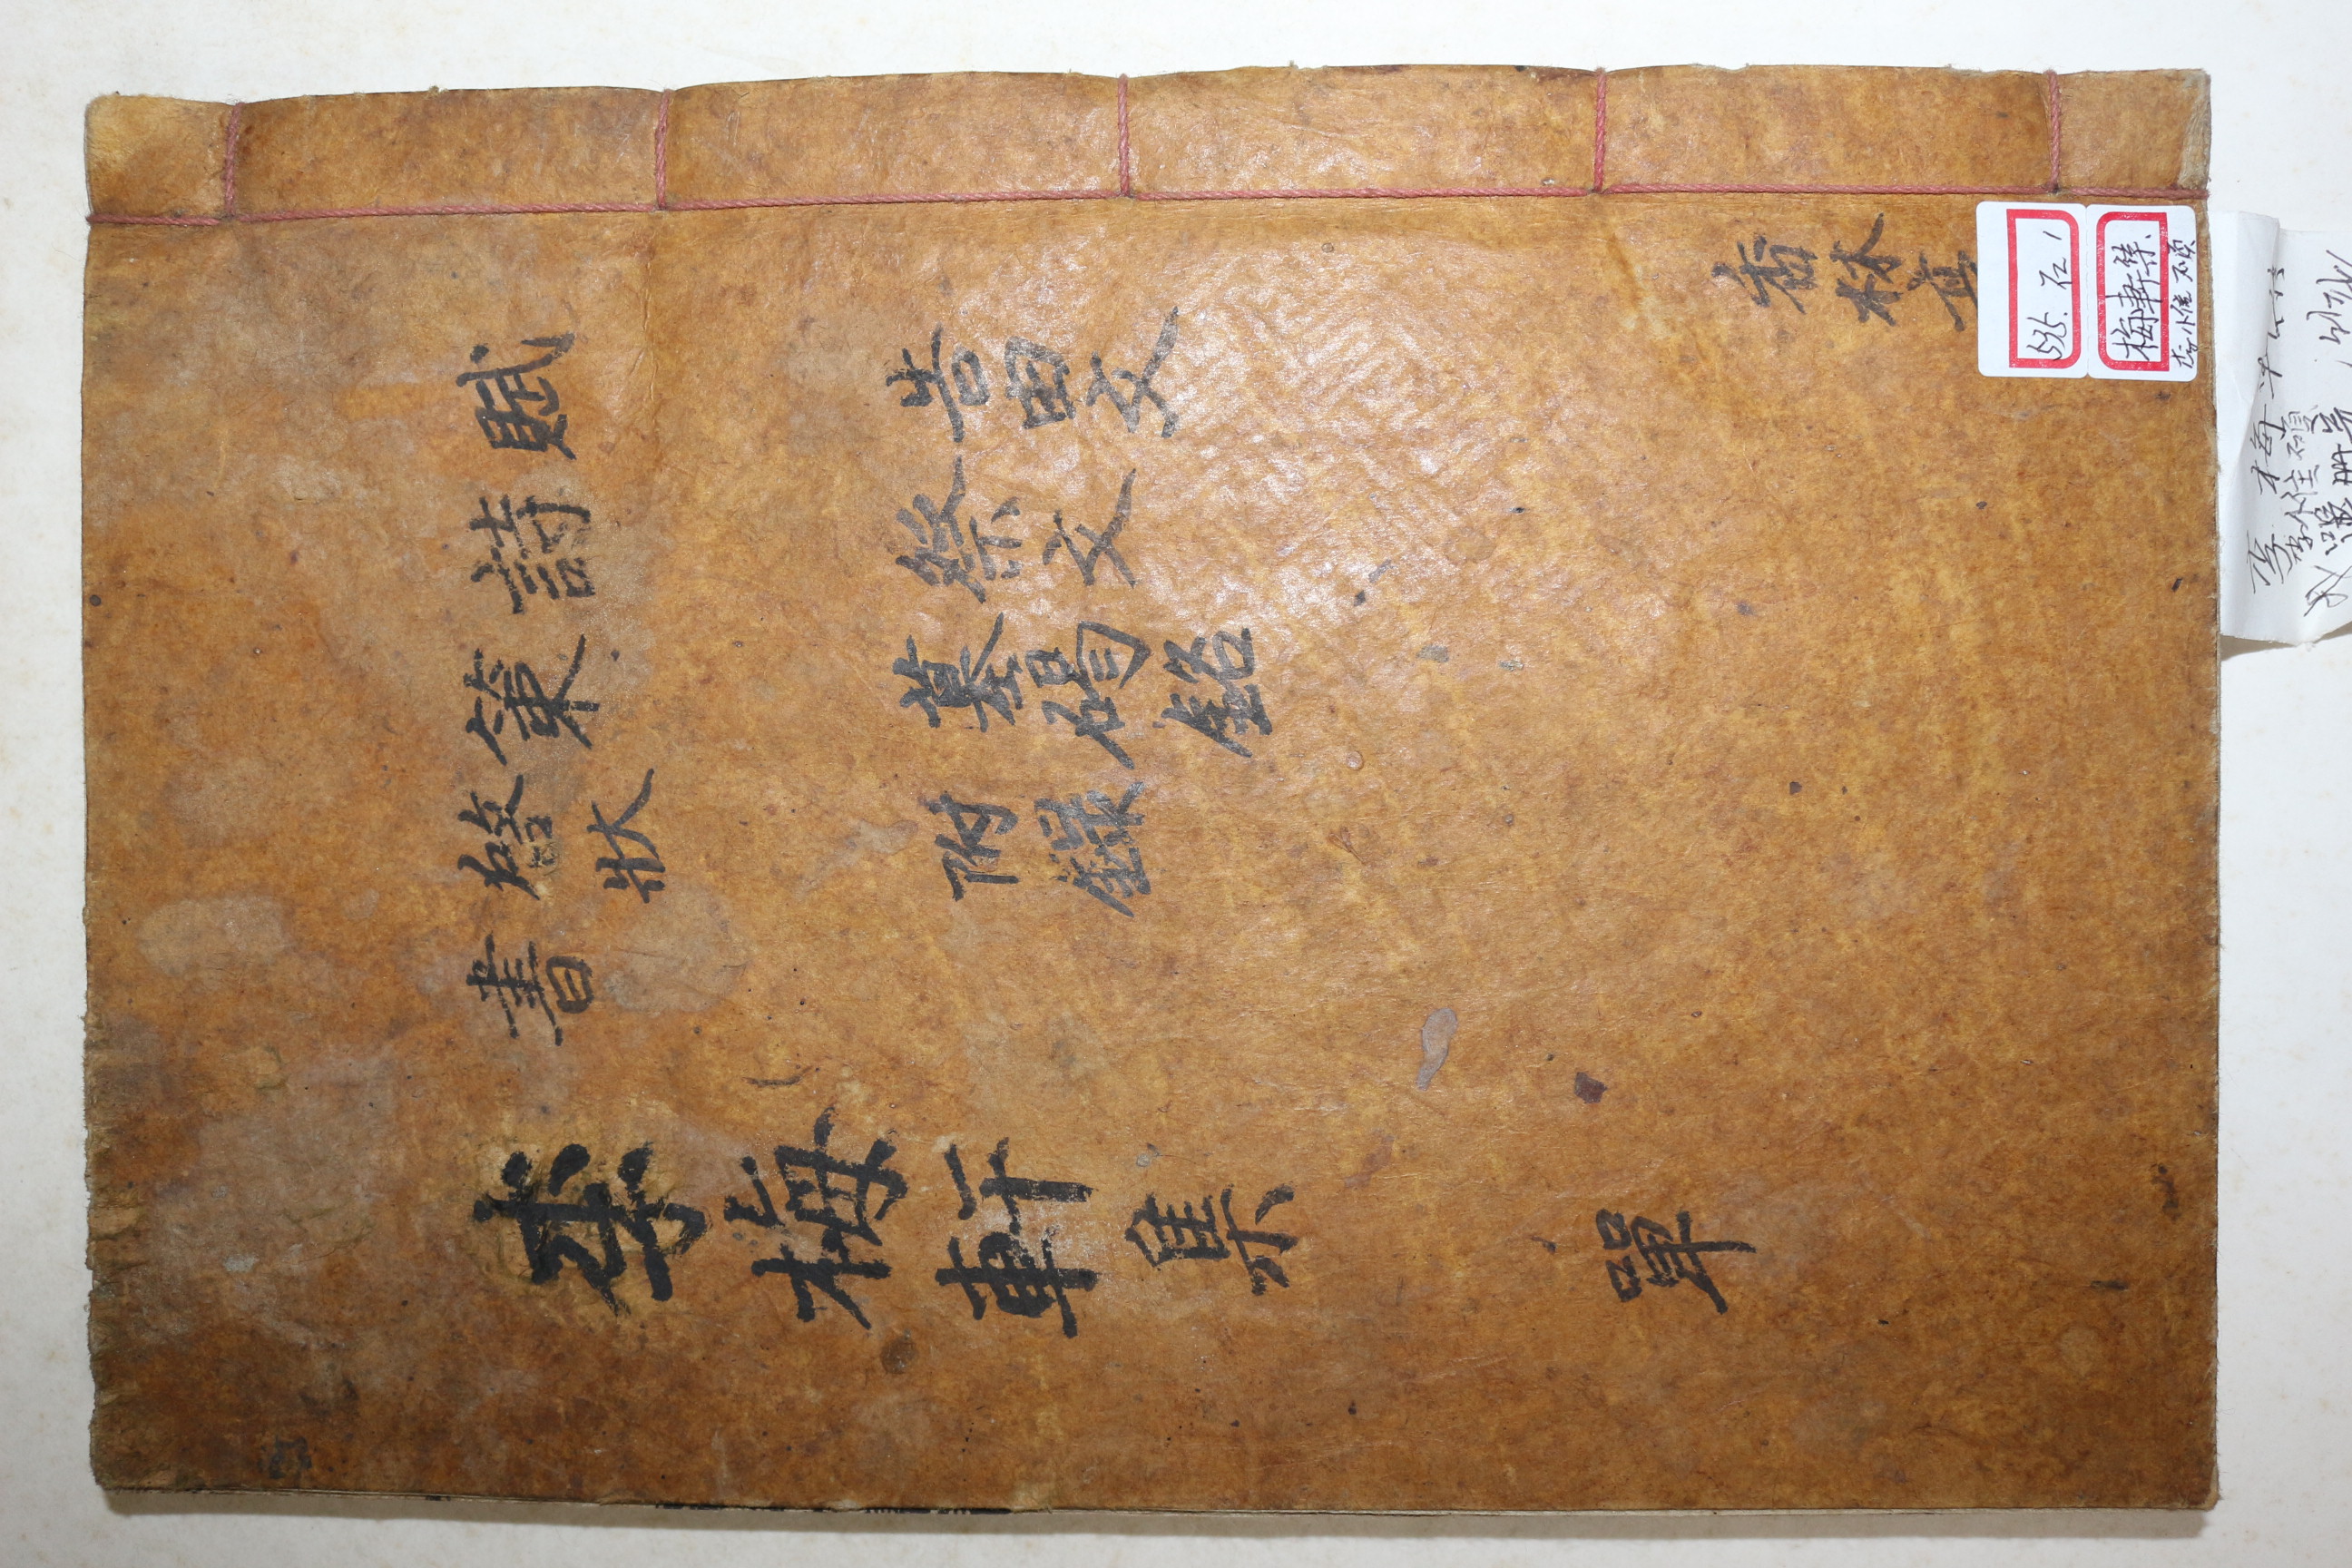 賦
詩
策
啓狀
書
告由文
祭文
墓碣銘
附錄
李梅軒集 單
香林亭
535. 石1
梅軒集
李惟碩
李梅軒
李惟碩